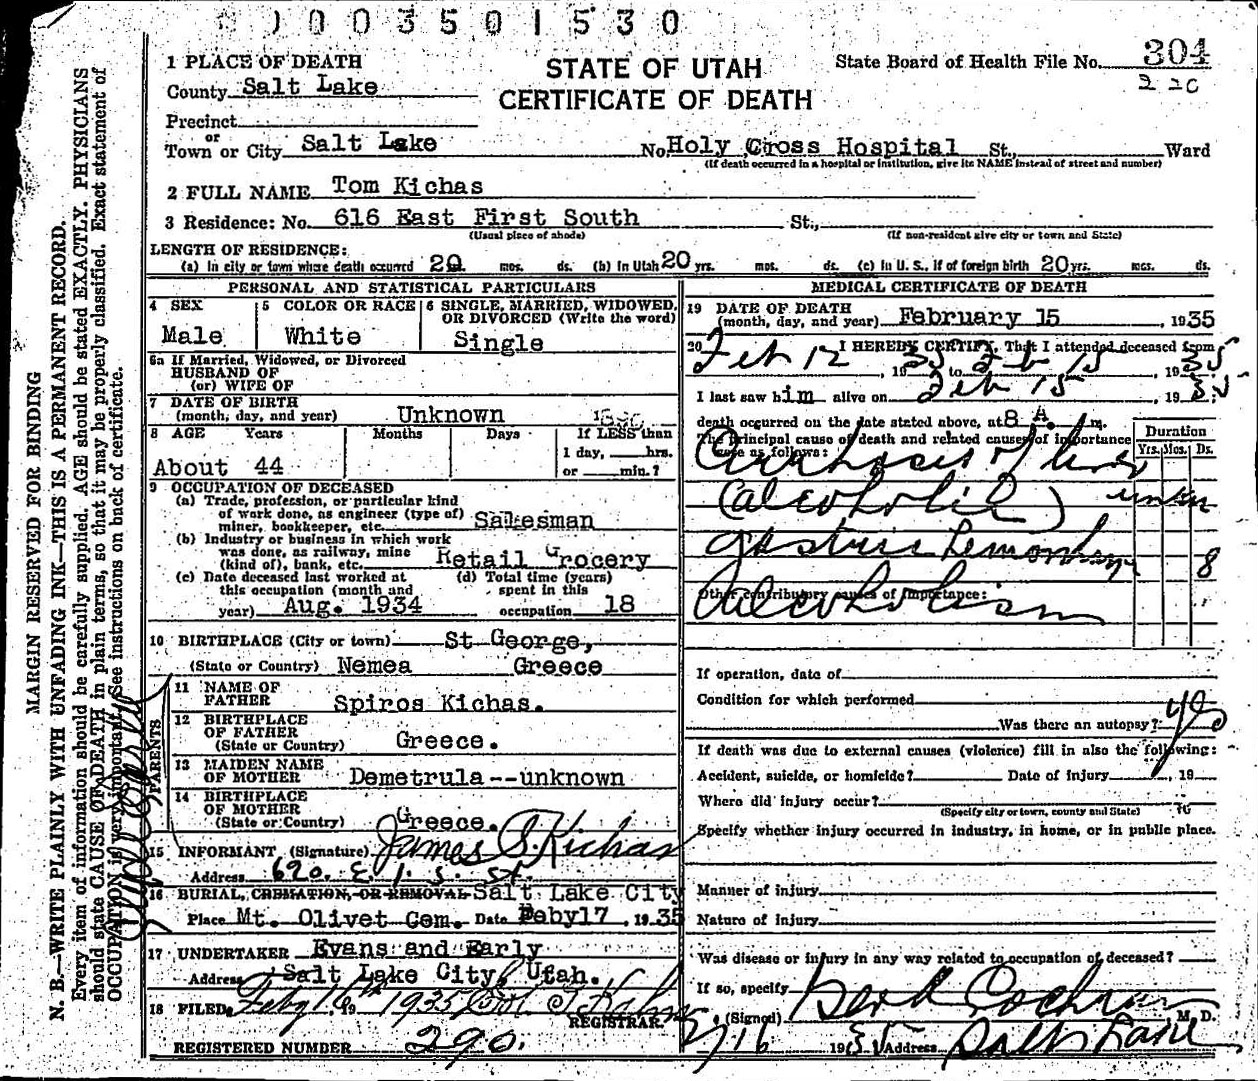 0 0 3 5 0 1 5 3 0
1 PLACE OF DEATH
County Salt Lake
Precinct
or
Town or City Salt Lake
STATE OF UTAH
CERTIFICATE OF DEATH
State Board of Health File No. 304
220
No. Holy Cross Hospital St., Ward
(If death occurred in a hospital or institution, give its NAME instead of street and number)
2 FULL NAME Tom Kichas
3 Residence: No. 616 East First South St.,
(Usual place of abode) (If non-resident give city or town and State)
LENGTH OF RESIDENCE:
(a) In city or town where death occurred 20 mos. ds. (b) In Utah 20 yrs. mos. ds. (c) In U. S., if of foreign birth 20 yrs. mos. ds.
PERSONAL AND STATISTICAL PARTICULARS
4 SEX Male
5 COLOR OR RACE White
6 SINGLE, MARRIED, WIDOWED, OR DIVORCED (Write the word) Single
6a If Married, Widowed, or Divorced
HUSBAND OF
(or) WIFE OF
7 DATE OF BIRTH
(month, day, and year) Unknown
8 AGE Years Months Days If LESS than
1 day, hrs.
or min.?
About 44
9 OCCUPATION OF DECEASED
(a) Trade, profession, or particular kind
of work done, as engineer (type of)
miner, bookkeeper, etc. Salesman
(b) Industry or business in which work
was done, as railway, mine
(kind of), bank, etc. Retail Grocery
(c) Date deceased last worked at
this occupation (month and
year) Aug. 1934
(d) Total time (years)
spent in this
occupation 18
10 BIRTHPLACE (City or town) St George,
(State or Country) Nemea Greece
PARENTS
11 NAME OF
FATHER Spiros Kichas.
12 BIRTHPLACE
OF FATHER
(State or Country) Greece.
13 MAIDEN NAME
OF MOTHER Demetrula--unknown
14 BIRTHPLACE
OF MOTHER
(State or Country) Greece.
15 INFORMANT (Signature) James S. Kichas
Address 620. E. 1. S. St.
16 BURIAL, CREMATION, OR REMOVAL Salt Lake City
Place Mt. Olivet Cem. Date Feby 17, 1935
17 UNDERTAKER Evans and Early
Address Salt Lake City, Utah.
18 FILED Feby 16th 19 1935
REGISTRAR
REGISTERED NUMBER 290.
MEDICAL CERTIFICATE OF DEATH
19 DATE OF DEATH
(month, day, and year) February 15 1935
20 I HEREBY CERTIFY, That I attended deceased from
Feb 12, 1935 to Feb 15, 1935
I last saw him alive on Feb 15, 1935
death occurred on the date stated above, at 8 A. m.
The principal cause of death and related causes of importance
were as follows:
Duration
Yrs. Mos. Ds.
Cirrhosis of liver
(alcoholic)
gastric hemorrhage 8
Other contributory causes of importance:
Alcoholism
If operation, date of
Condition for which performed
Was there an autopsy? yes
If death was due to external causes (violence) fill in also the following:
Accident, suicide, or homicide? Date of injury , 19
Where did injury occur?
(Specify city or town, county and State)
Specify whether injury occurred in industry, in home, or in public place.
Manner of injury
Nature of injury
Was disease or injury in any way related to occupation of deceased?
If so, specify
(Signed) Cochran M. D.
2/16 1935 Address Salt Lake
MARGIN RESERVED FOR BINDING
N. B.—WRITE PLAINLY WITH UNFADING INK—THIS IS A PERMANENT RECORD.
Every item of information should be carefully supplied. AGE should be stated EXACTLY. PHYSICIANS
should state CAUSE OF DEATH in plain terms, so that it may be properly classified. Exact statement of
OCCUPATION is very important. See instructions on back of certificate.